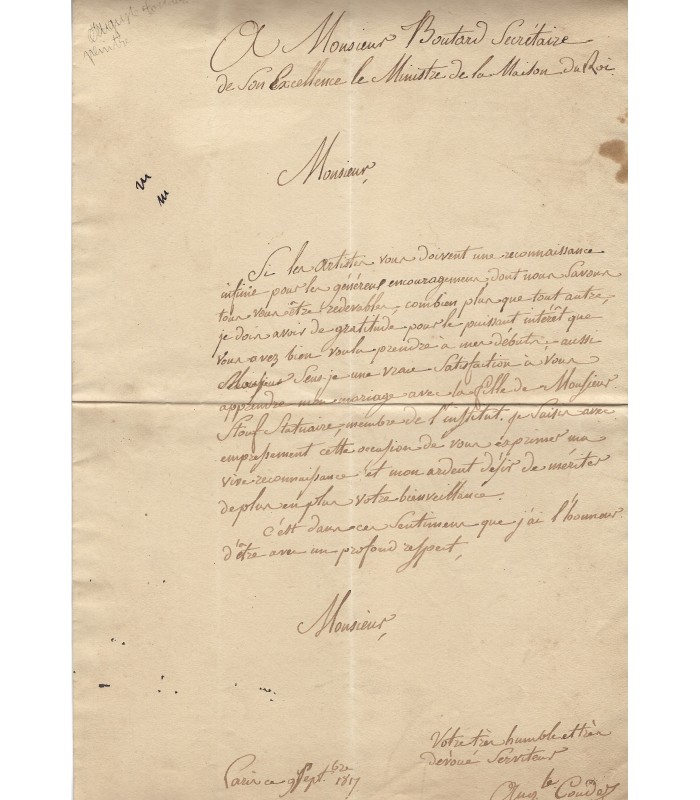 Auguste
peintre
A Monsieur Boutard Secrétaire
de Son Excellence le Ministre de la Maison du Roi.
Monsieur,
Si les artistes vous doivent une reconnaissance
infinie pour les généreux encouragemens, dont nous Savons
tous vous être redevables, combien plus que tout autre,
je dois avoir de gratitude pour le puissant intérêt que
vous avez bien voulu prendre à mes débuts. aussi
Monsieur Sens-je une vraie Satisfaction à vous
apprendre mon mariage avec la fille de Monsieur
Stouf Statuaire, membre de l'institut. je Saisis avec
empressement cette occasion de vous exprimer ma
vive reconnaissance et mon ardent désir de mériter
de plus en plus votre bienveillance.
c'est dans ces Sentimens que j'ai l'honneur
d'être avec un profond respect,
Monsieur,
Votre très humble et très
Dévoué Serviteur
Paris ce 9 Sept.bre 1817
Aug.te Couder